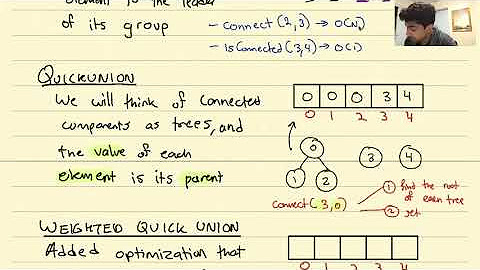 element to the leader
of its group
- connect (2,3) → O(N)
- isConnected (3,4) → O(1)
QUICKUNION
We will think of connected
components as trees, and
the value of each
element is its parent
0 0 0 3 4
0 1 2 3 4
0
1 2 3 4
connect (3,0)
1 find the root
of each tree
2 set
WEIGHTED QUICK UNION
Added optimization that
0 1 2 3 4